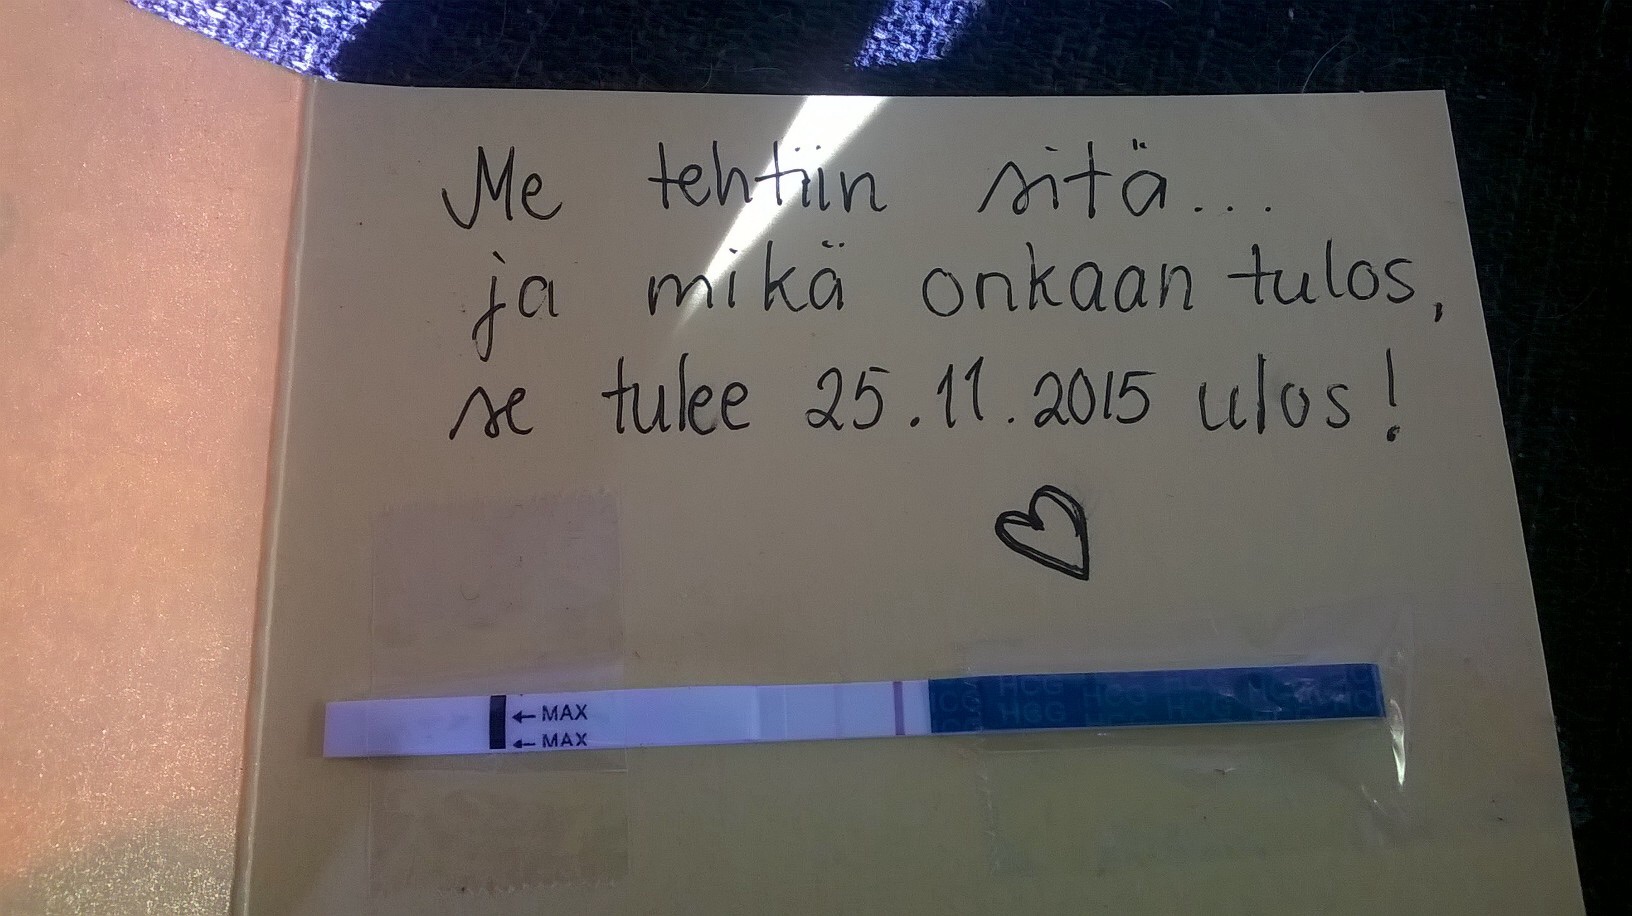 Me tehtiin sitä...
ja mikä onkaan tulos,
se tulee 25.11.2015 ulos!
← MAX
← MAX
HCG HCG HCG HCG HCG
HCG HCG HCG HCG HCG